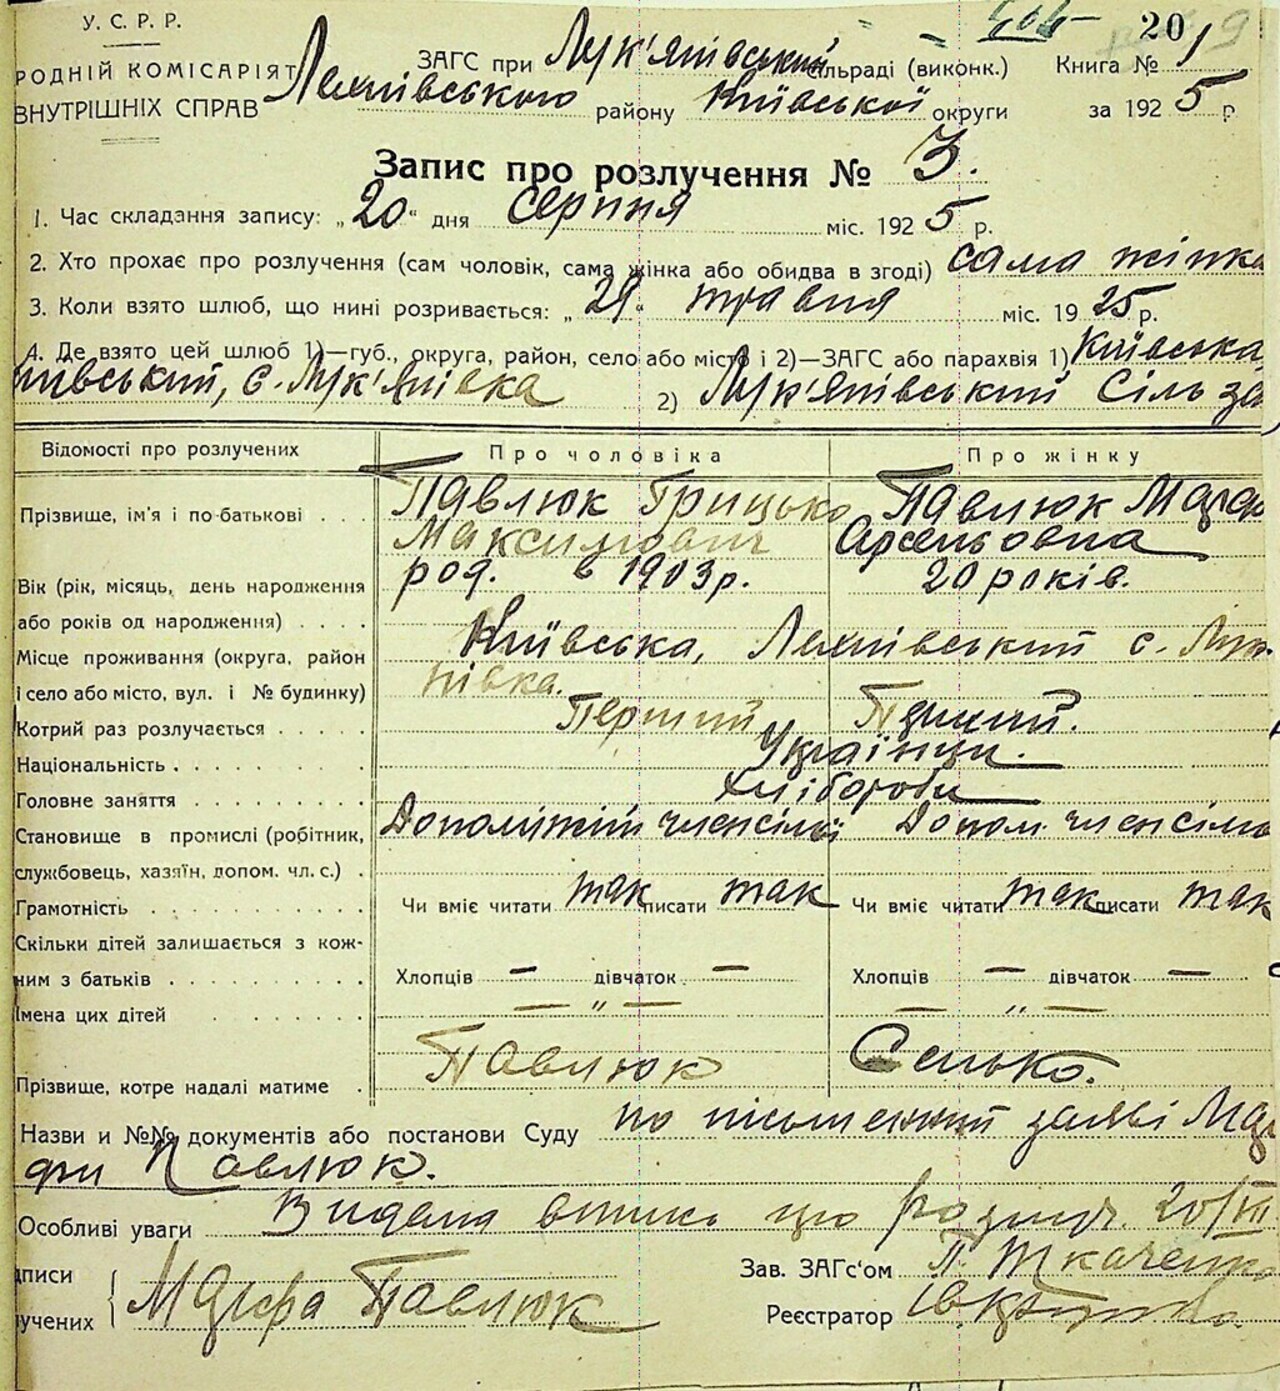 У. С. Р. Р.
20
РОДНІЙ КОМІСАРІЯТ
ВНУТРІШНІХ СПРАВ
ЗАГС при Лук'янівський сільраді (виконк.) Книга № 1
району Київської округи за 1925 р.
Запис про розлучення № 3.
1. Час складання запису: „20“ дня серпня міс. 1925 р.
2. Хто прохає про розлучення (сам чоловік, сама жінка або обидва в згоді) сама жінка
3. Коли взято шлюб, що нині розривається: „29“ травня міс. 1925 р.
4. Де взято цей шлюб 1)—губ., округа, район, село або місто і 2)—ЗАГС або парахвія 1) Київська,
нивський, с. Лук'янівка 2) Лук'янівський Сіль за
Відомості про розлучених Про чоловіка Про жінку
Прізвище, ім'я і по-батькові . . . Павлюк Грицько Павлюк
Максимович Арсеньовна
Вік (рік, місяць, день народження род. в 1903 р. 20 років.
або років од народження) . . . .
Місце проживання (округа, район Київська, с.
і село або місто, вул. і № будинку) нівка.
Котрий раз розлучається . . . . . Перший Перший.
Національність . . . . . . . Українци.
Головне заняття . . . . . . . . . Хлібороби
Становище в промислі (робітник, членсімї Допом. членсімь
службовець, хазяїн, допом. чл. с.) .
Грамотність . . . . . . . . . . . Чи вміє читати так писати так Чи вміє читати так писати так
Скільки дітей залишається з кож-
ним з батьків . . . . . . . . . . Хлопців — дівчаток — Хлопців — дівчаток —
Імена цих дітей . . . . . . . — „ — — „ —
Прізвище, котре надалі матиме . Павлюк Сенько.
Назви и №№ документів або постанови Суду по письменній заяві
Павлюк.
Особливі уваги Видана випис про розлуч. 20/VIII
дписи Зав. ЗАГс'ом П. Ткаченко
лучених { Павлюк Реєстратор